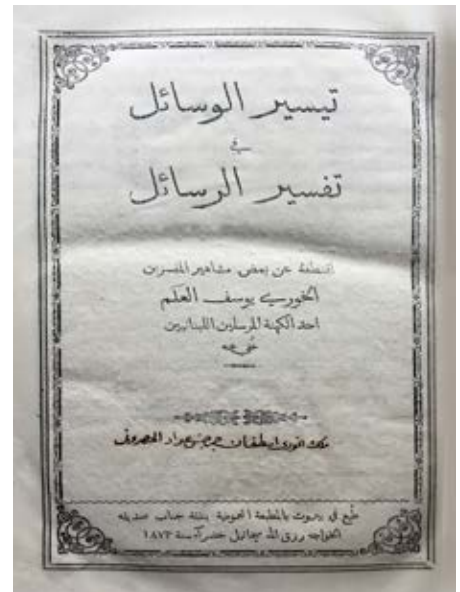 تيسير الوسائل
في
تفسير الرسائل
اقتطفه عن بعض مشاهير المفسرين
الخوري يوسف العلم
احد الكهنة المرسلين اللبنانيين
عُفي عنه
ملك الخوري اسطفان
طُبع في بيروت بالمطبعة العمومية بنفقة جناب صديقه
الخواجه رزق الله ميخائيل خضرا سنة ١٨٧٣